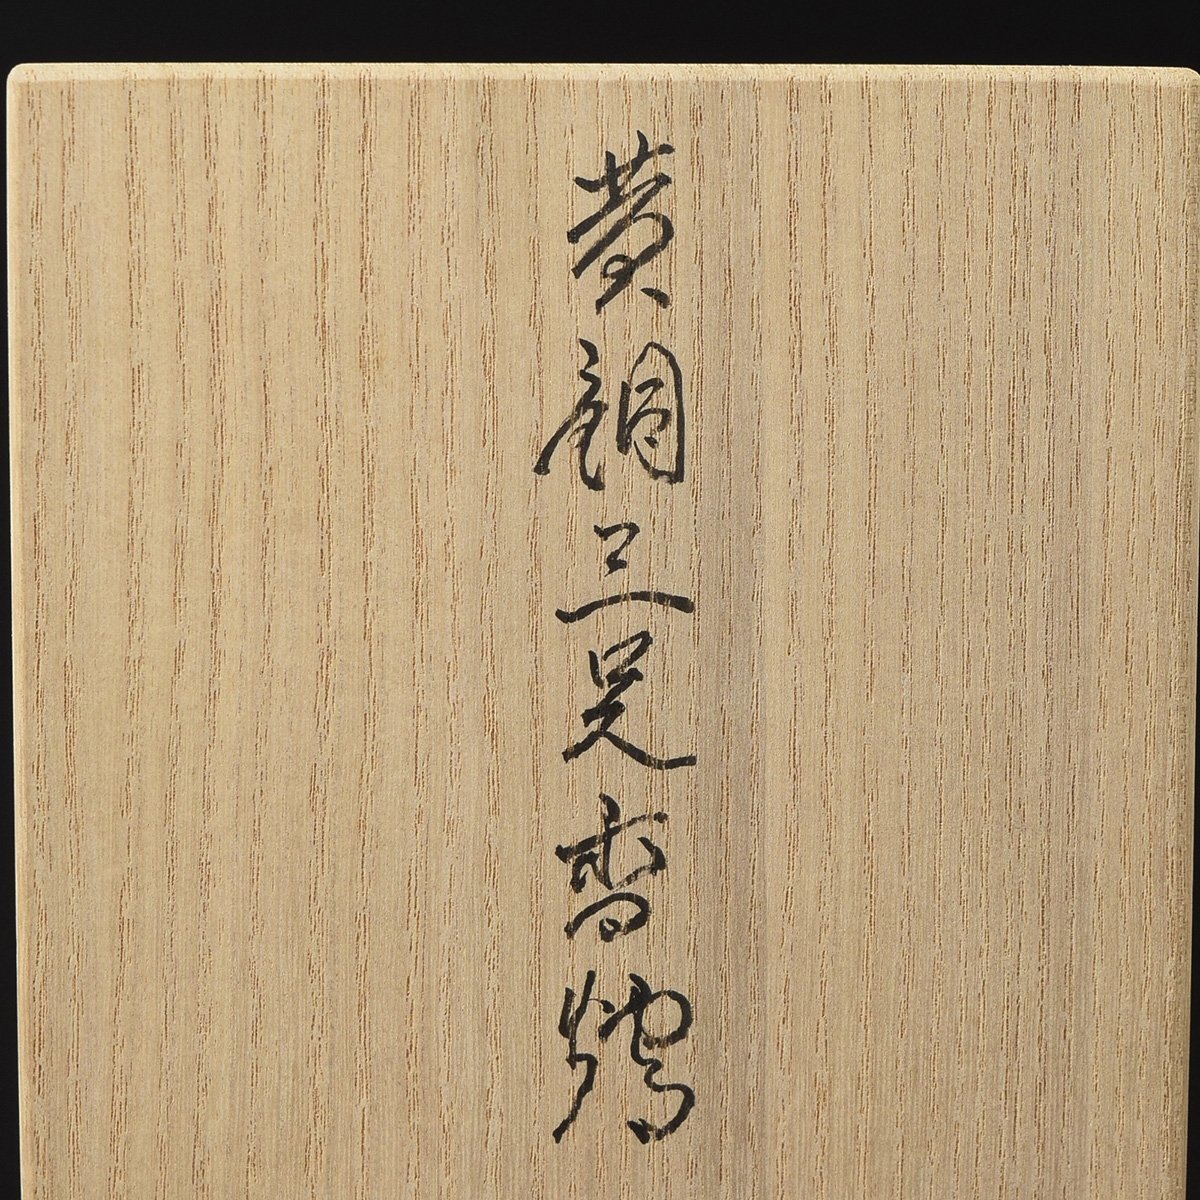 黄銅三足香炉